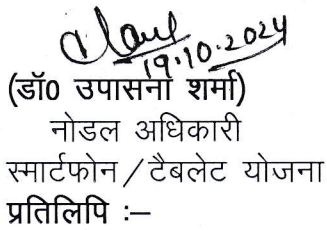 19.10.2024
(डॉ0 उपासना शर्मा)
नोडल अधिकारी
स्मार्टफोन / टैबलेट योजना
प्रतिलिपि :–